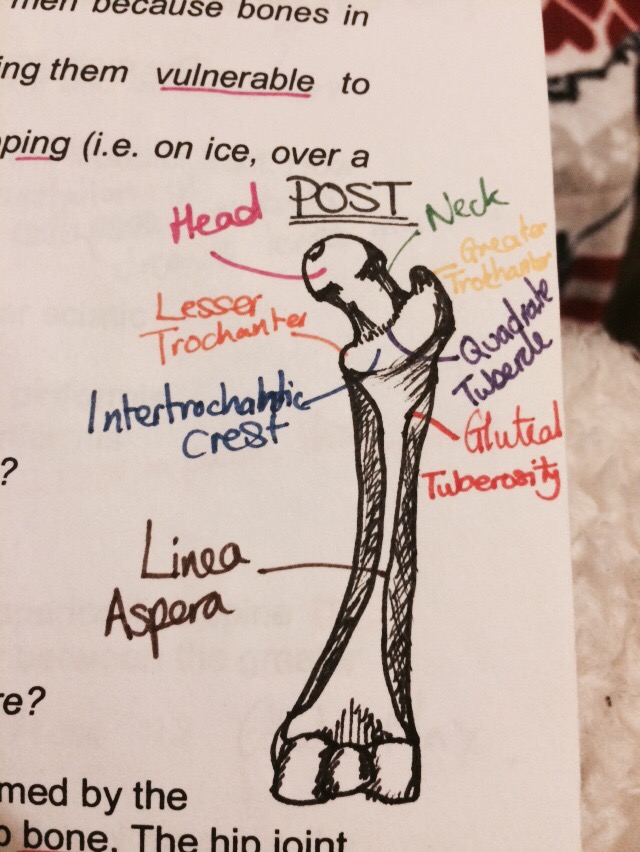 men because bones in
ing them vulnerable to
ping (i.e. on ice, over a
POST
Head
Neck
Greater
Trochanter
Lesser
Trochanter
Quadrate
Tubercle
Intertrochantic
Crest
Gluteal
Tuberosity
?
Linea
Aspera
re?
med by the
bone. The hip joint